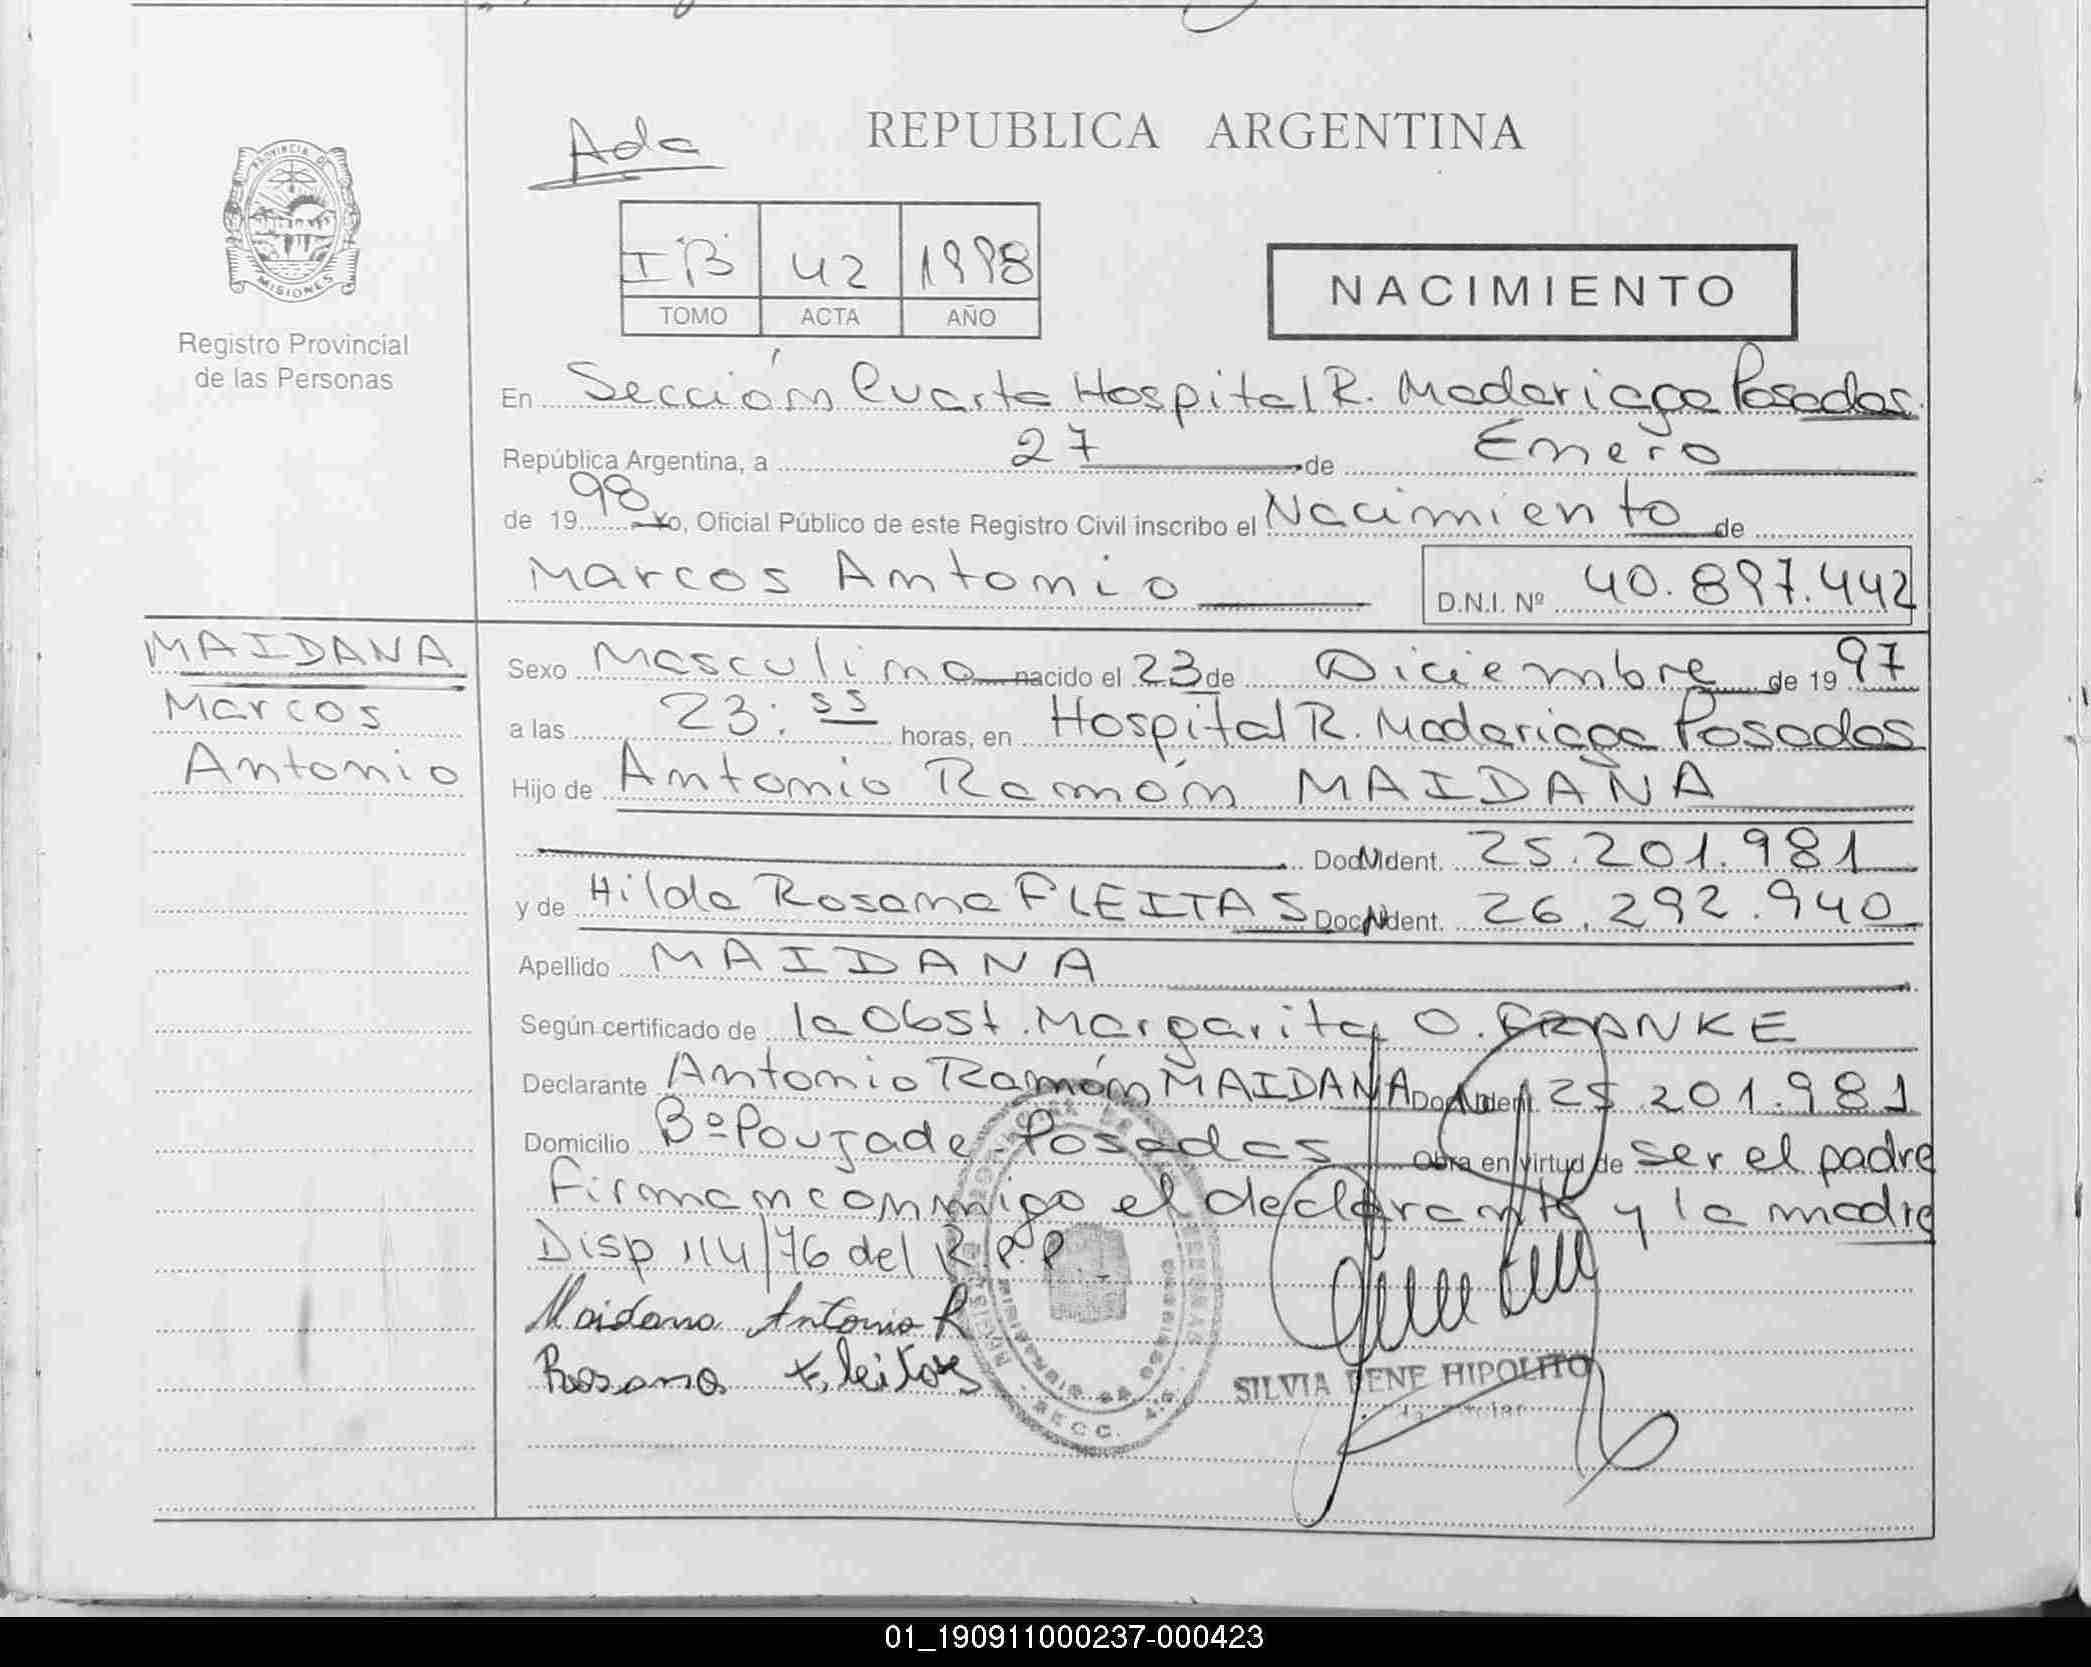 Ada
REPUBLICA ARGENTINA
PROVINCIA DE
MISIONES
Registro Provincial
de las Personas
I B 42 1998
TOMO ACTA AÑO
NACIMIENTO
En Sección Cuarta Hospital R. Madariaga Posadas.
República Argentina, a 27 de Enero
de 1998 Yo, Oficial Público de este Registro Civil inscribo el Nacimiento de
Marcos Antonio
D.N.I. Nº 40.897.442
MAIDANA
Marcos
Antonio
Sexo Masculino nacido el 23 de Diciembre de 1997
a las 23:55 horas, en Hospital R. Madariaga Posadas
Hijo de Antonio Ramón MAIDANA
Doc. Ident. 25.201.981
y de Hilda Rosana FLEITAS Doc. Ident. 26.292.940
Apellido MAIDANA
Según certificado de la Obst. Margarita O. FRANKE
Declarante Antonio Ramón MAIDANA Doc. Ident. 25.201.981
Domicilio Bº Poujade - Posadas Obra en virtud de ser el padre
Firman conmigo el declarante y la madre
Disp 114/76 del R.P.P.
Maidana Antonio R
Rosana Fleitas
SILVIA IRENE HIPOLITO
01_190911000237-000423